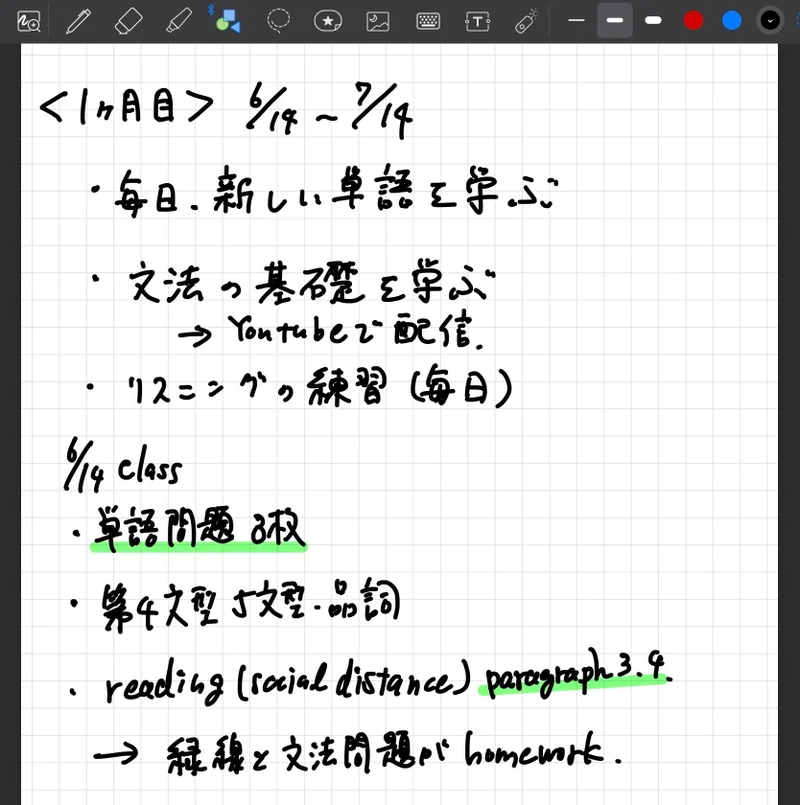 <1ヶ月目> 6/14 ~ 7/14
・毎日、新しい単語を学ぶ
・文法の基礎を学ぶ
→ Youtubeで配信.
・リスニングの練習(毎日)
6/14 class
・単語問題 8枚
・第4文型 5文型・品詞
・reading (social distance) paragraph 3.4.
→ 緑線と文法問題が homework.